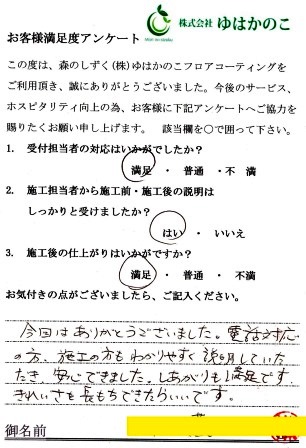 株式会社 ゆはかのこ
お客様満足度アンケート
この度は、森のしずく(株)ゆはかのこフロアコーティングを
ご利用頂き、誠にありがとうございました。今後のサービス、
ホスピタリティ向上の為、お客様に下記アンケートへご協力を
賜りたくお願い申し上げます。 該当欄を○で囲って下さい。
1. 受付担当者の対応はいかがでしたか?
満足 ・ 普通 ・ 不満
2. 施工担当者から施工前・施工後の説明は
しっかりと受けましたか?
はい ・ いいえ
3. 施工後の仕上がりはいかがですか?
満足 ・ 普通 ・ 不満
お気付きの点がございましたら、ご記入ください。
今回はありがとうございました。電話対応
の方、施工の方もわかりやすく説明していた
だき、安心できました。しあがりも満足です。
きれいさを長もちできたらいいです。
御名前